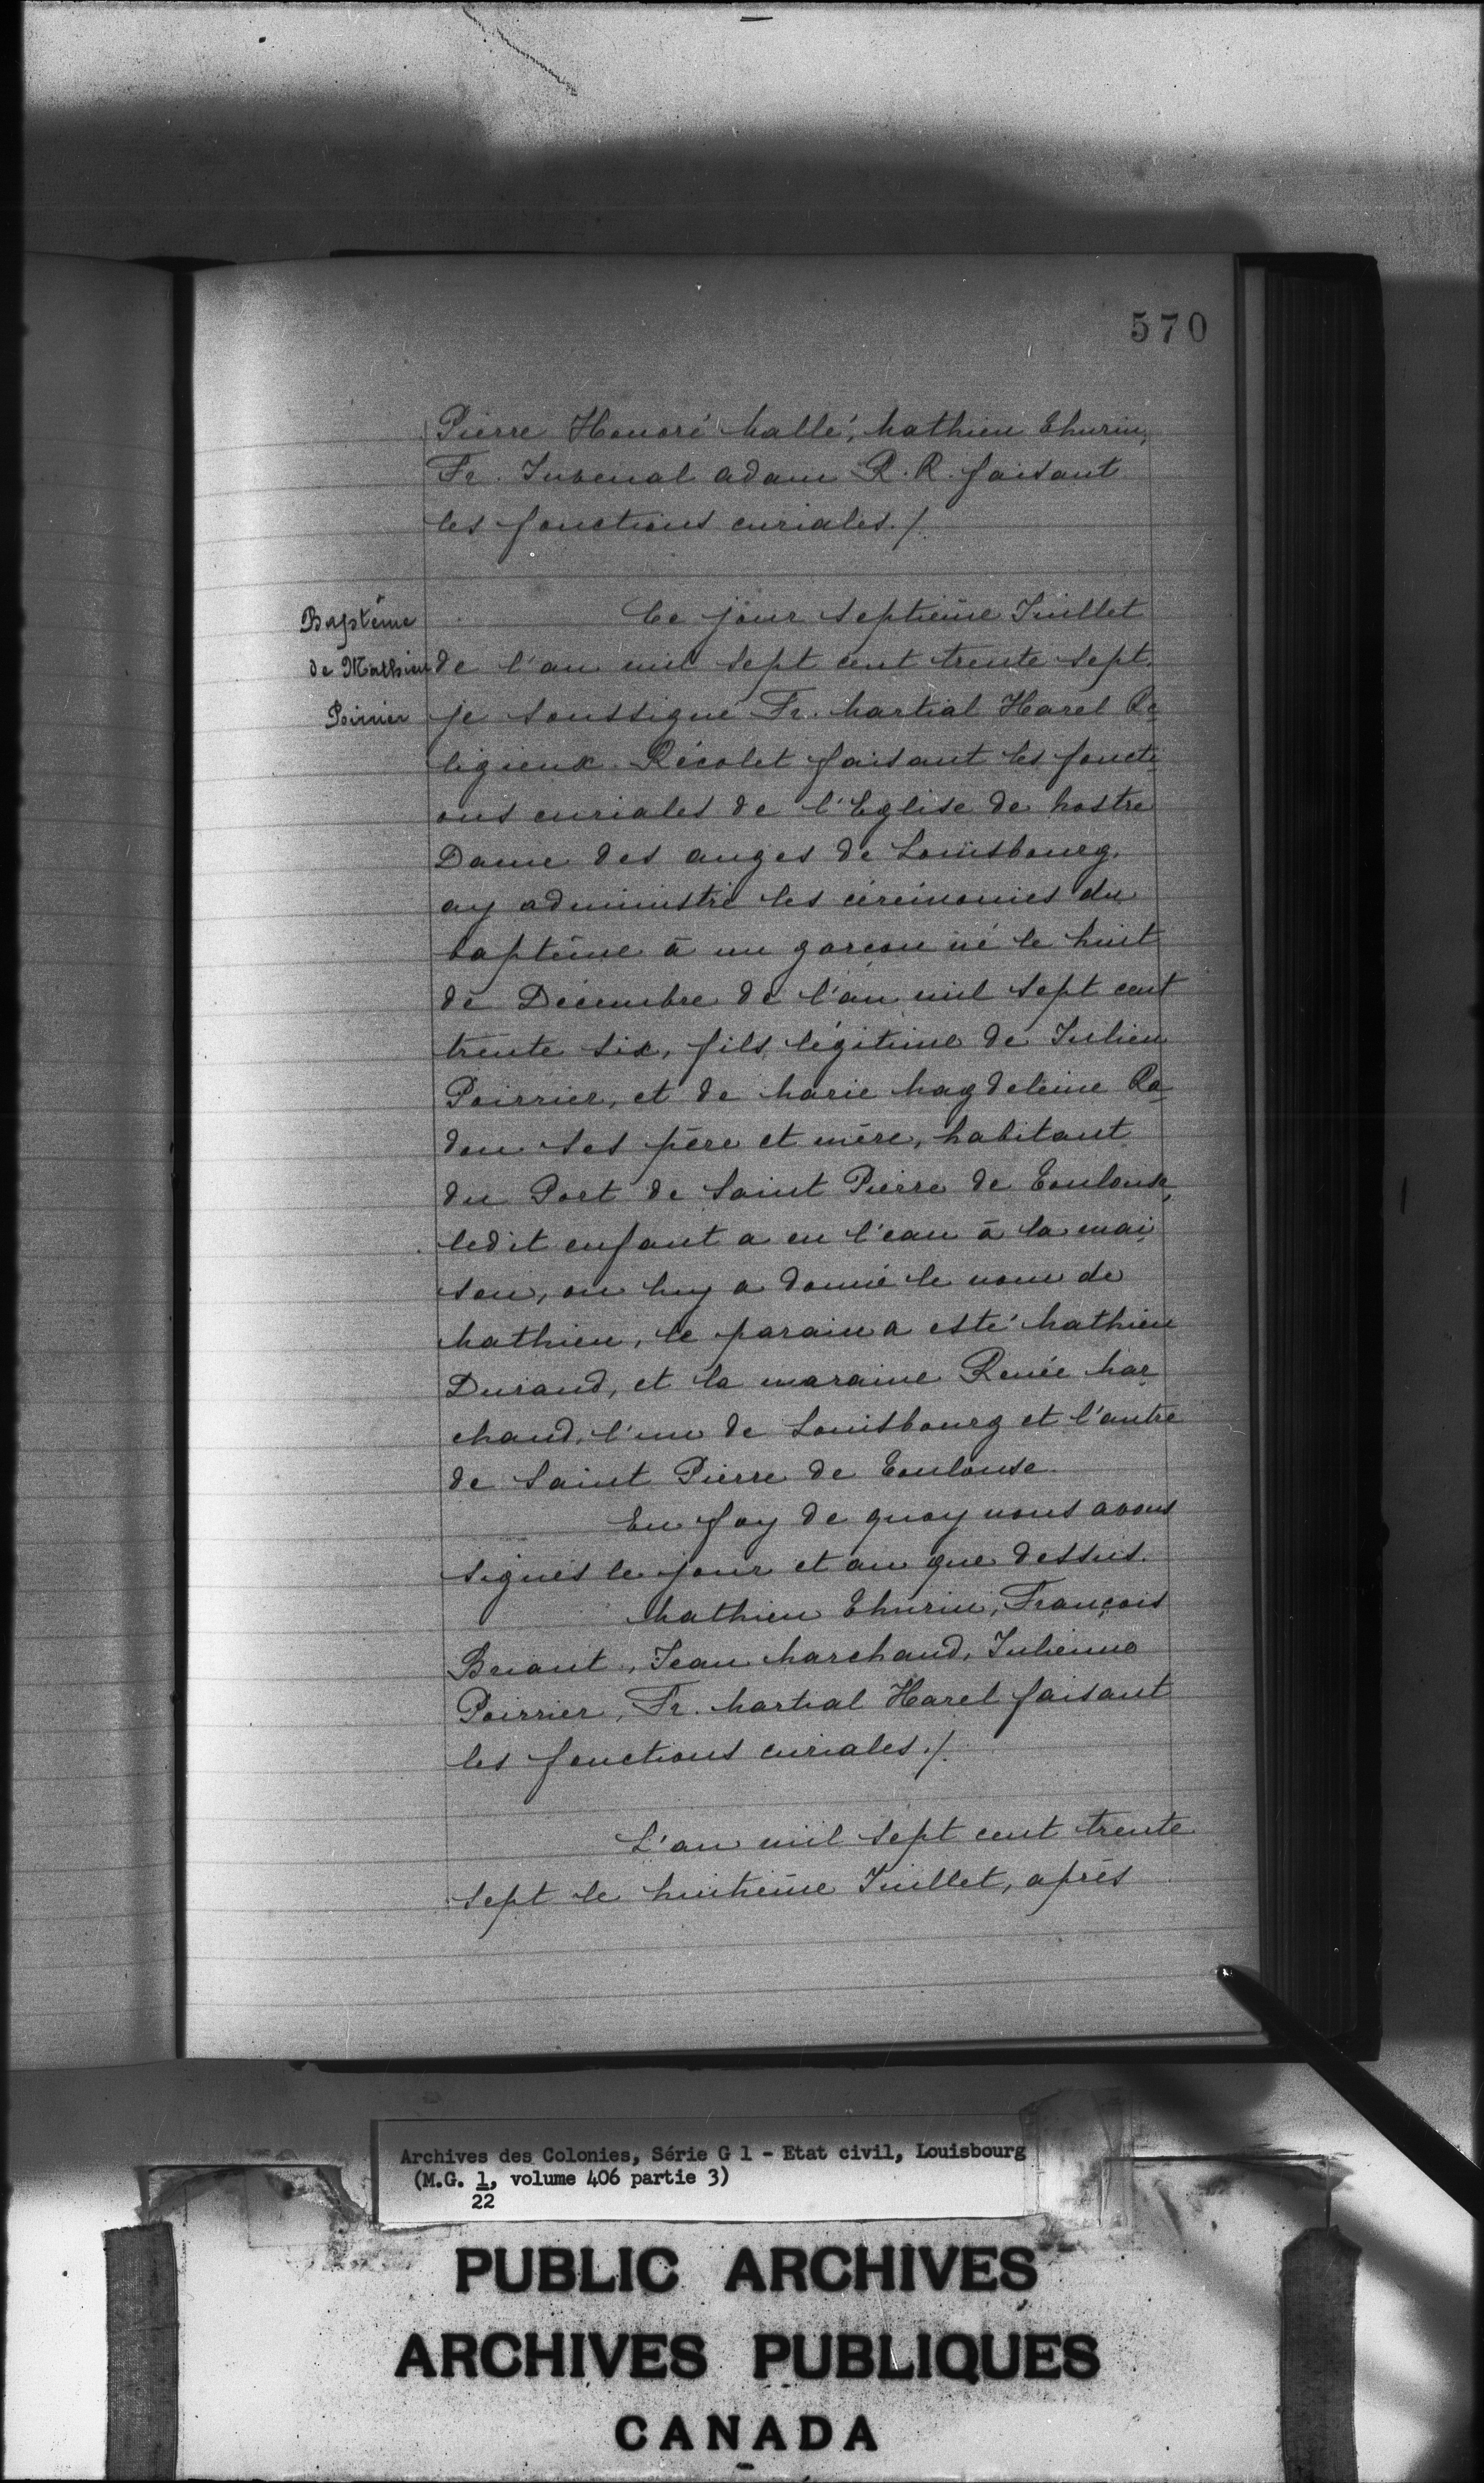 570
Pierre Honoré hallé, hathieu Thurin,
Fr. Juvenal adam R. R. faisant
les fonctions curiales./.
Baptême
de Mathieu
Poirier
Ce jour septième Juillet
de l'an mil sept cent trente sept.
je soussigné Fr. hartial Harel Re
ligieux Récolet faisant les foncti
ons curiales de l'Eglise de hostre
Dame des anges de Louisbourg,
ay administré les cérémonies du
baptême à un garçon né le huit
de Décembre de l'an mil sept cent
trente six, fils légitime de Julien
Poirrier, et de harie hagdeleine Ro
don ses père et mère, habitant
du Port de Saint Pierre de Toulouse,
ledit enfant a eu l'eau à la mai
son, on luy a donné le nom de
hathieu, le parain a esté hathieu
Durand, et la maraine Renée har
chand, l'un de Louisbourg et l'autre
de Saint Pierre de Toulouse.
En foy de quoy nous avons
signés le jour et an que dessus.
hathieu Thurin, François
Briant, Jean harchand, Julienne
Poirrier, Fr. hartial Harel faisant
les fonctions curiales./.
L'an mil sept cent trente
sept le huitième Juillet, après
Archives des Colonies, Série G 1 - Etat civil, Louisbourg
(M.G. 1, volume 406 partie 3)
22
PUBLIC ARCHIVES
ARCHIVES PUBLIQUES
CANADA